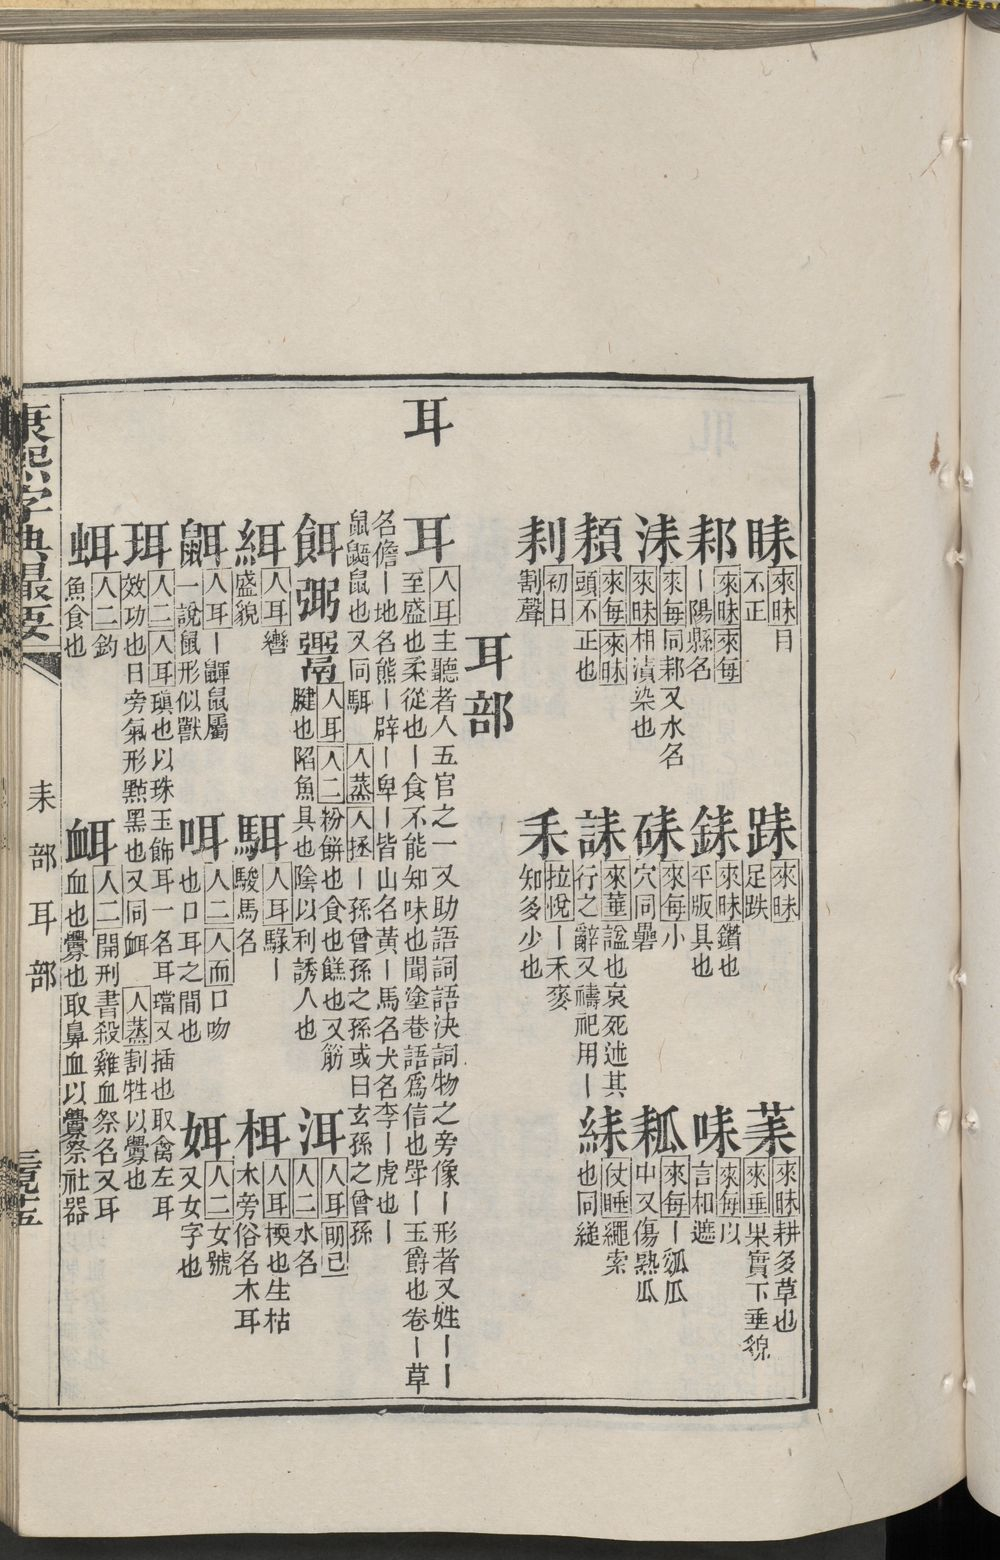 睞 來昧目
不正
䟺 來昧
足跌
䒹 來昧耕多草也
來垂果實下垂貌
耒阝 來昧來每
丨陽縣名
銇 來昧鑽也
平版具也
唻 來每以
言相遮
洡 來每同耒阝又水名
來昧相漬染也
硦 來每小
穴同礨
瓜 來每丨瓠瓜
中又傷熟瓜
頛 來每來昧
頭不正也
誄 來華諡也哀死述其
行之辭又禱祀用丨
絑 仗睡繩索
也同縋
㓨 初日
割聲
耒 拉悅丨禾麥
知多少也
耳部
耳
耳 人耳主聽者人五官之一又助語詞語決詞物之旁像丨形者又姓丨丨
至盛也柔從也丨食不能知味也聞塗巷語爲信也斝丨玉爵也卷丨草
名儋丨地名熊丨辟丨卑丨皆山名黃丨馬名犬名李丨虎也丨
鼠鼯鼠也又同駬 人蒸人拯丨孫曾孫之孫或曰玄孫之曾孫
餌 人耳人二粉餅也食也餻也又筋
腱也陷魚具也陰以利誘人也
洱 人耳明己
人二水名
緷 人耳轡
盛貌
駬 人耳騄丨
駿馬名
栮 人耳檽也生枯
木旁俗名木耳
鼠耳 人耳丨鼲鼠屬
一說鼠形似獸
咡 人二人而口吻
也口耳之間也
姐 人二女號
又女字也
珥 人二人耳瑱也以珠玉飾耳一名耳璫又插也取禽左耳
效功也日旁氣形點黑也又同衈 人蒸割牲以釁也
蛘 人二釣
魚食也
衈 人二開刑書殺雞血祭名又耳
血也釁也取鼻血以釁祭社器
康熙字典最要
耒部耳部